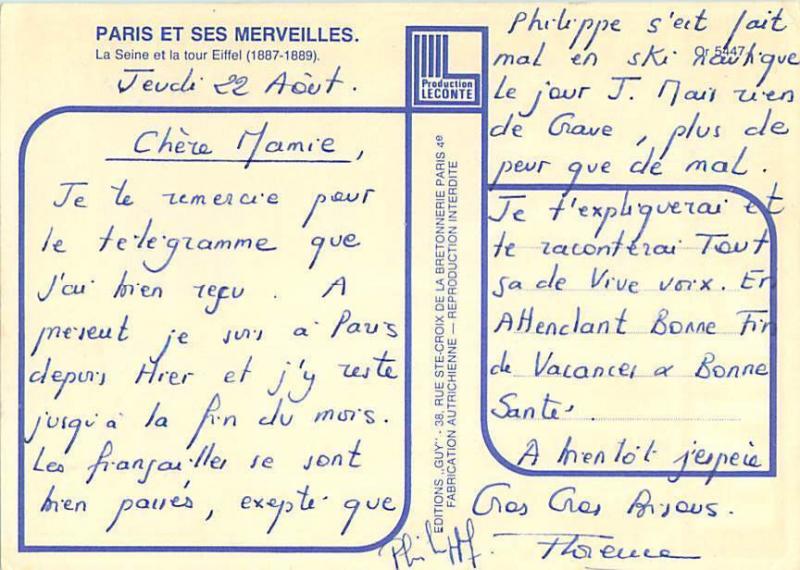 PARIS ET SES MERVEILLES.
La Seine et la tour Eiffel (1887-1889).
Jeudi 22 Aôut.
Chère Mamie,
Je te remercie pour
le télégramme que
j'ai bien reçu. A
présent je suis à Paris
depuis Hier et j'y reste
jusqu'à la fin du mois.
Les fiançailles se sont
bien passés, exepté que
Production
LECONTE
EDITIONS „GUY" - 38, RUE STE-CROIX DE LA BRETONNERIE PARIS 4e
FABRICATION AUTRICHIENNE — REPRODUCTION INTERDITE
Or 5447
Philippe s'est fait
mal en ski nautique
le jour J. Mais rien
de Grave, plus de
peur que de mal.
Je t'expliquerai et
te raconterai Tout
sa de Vive voix. En
Attendant Bonne Fin
de Vacances & Bonne
Santé.
A bientôt j'espère
Gros Gros Bisous.
Florence